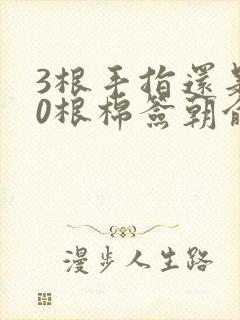 3根手指還
0根棉簽朝
漫步人生路